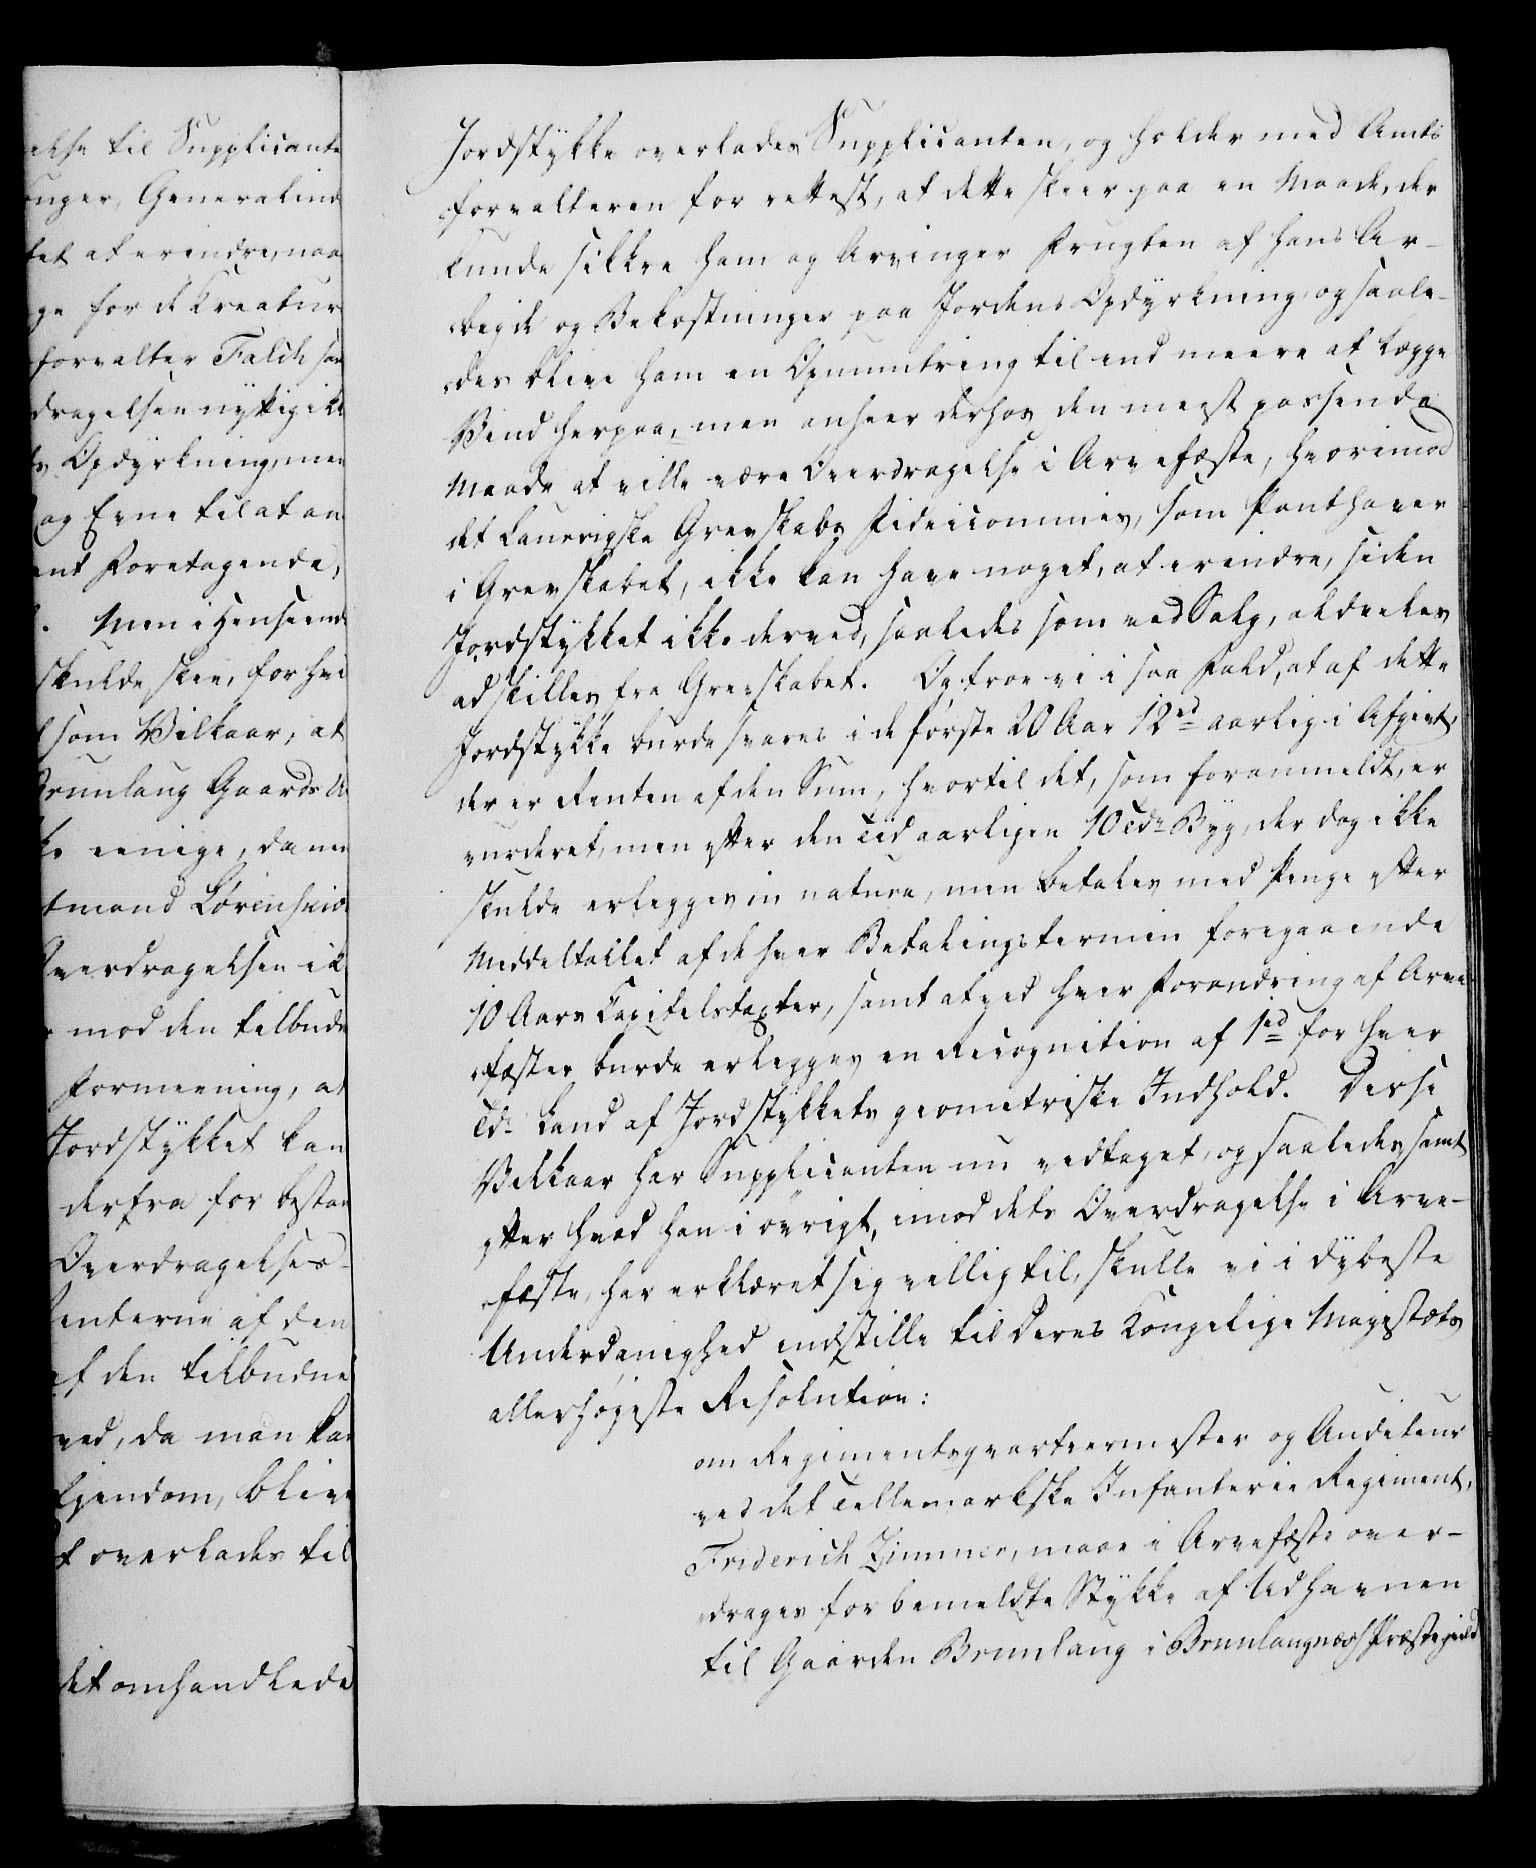 else til Supplicante
nger, Generalind
tet at erindre, naa
ge for de Kreatur
forvalter Falch sa
dragelsen nyttig ik
s Opdyrkning, men
og Evne til at an
nt Foretagende,
. Men i Henseend
skulde skee, for hvi
som Vilkaar, at
Brunlaug Gaards A
ke eenige, da me
tmand Lövenskiol
verdragelsen ik
mod den tilbudn
Formeening, at
Jordstykket kan
derfra for bestan
Overdragelses-
enterne af den
af den tilbudne
ved, da man ka
Ejendom, blive
t overlades til
det omhandlede
Jordstykke overlades Supplicanten, og holder med Amts
forvalteren for rettest, at dette skeer paa en Maade, der
kunde sikkre ham og Arvinger Frugten af hans Ar-
beyde og Bekostninger paa Jordens Opdyrkning, og saale-
des blive ham en Opmuntring til end meere at lægge
Vind herpaa, men anseer derhos den meest passende
Maade at ville være Overdragelse i Arvefæste, hvorimod
det Laurvigske Grevskabs Fideicommis, som Panthaver
i Grevskabet, ikke kan have noget, at erindre, siden
Jordstykket ikke derved, saaledes som ved Salg, aldeeles
adskilles fra Grevskabet. Og troe vi i saa Fald, at af dette
Jordstykke burde svares i de første 20 Aar 12 rd aarlig i Afgivt,
der er Renten af den Sum, hvortil det, som foranmeldt, er
vurderet, men efter den Tid aarligen 10 Tdr Byg, der dog ikke
skulde erlegges in natura, men betales med Penge efter
Middeltallet af de hver Betalingstermin foregaaende
10 Aars Capitelstaxter, samt at ved hver Forandring af Arve-
fæster burde erlegges en Recognition af 1 rd for hver
Td. Land af Jordstykkets geometriske Indhold. Disse
Vilkaar har Supplicanten nu vedtaget, og saaledes samt
efter hvad han i øvrigt, imod dets Overdragelse i Arve-
fæste, har erklæret sig villig til, skulle vi i dybeste
Underdanighed indstille til Deres Kongelige Majestæts
allerhøjeste Resolution:
om Regimentsqvarteermester og Auditeur
ved det Tellemarkske Infanterie Regiment,
Friderich Zimmer, maae i Arvefæste over-
drages forbemeldte Stykke af Udhavnen
til Gaarden Brunlaug i Brunlaugnæs Præstegield